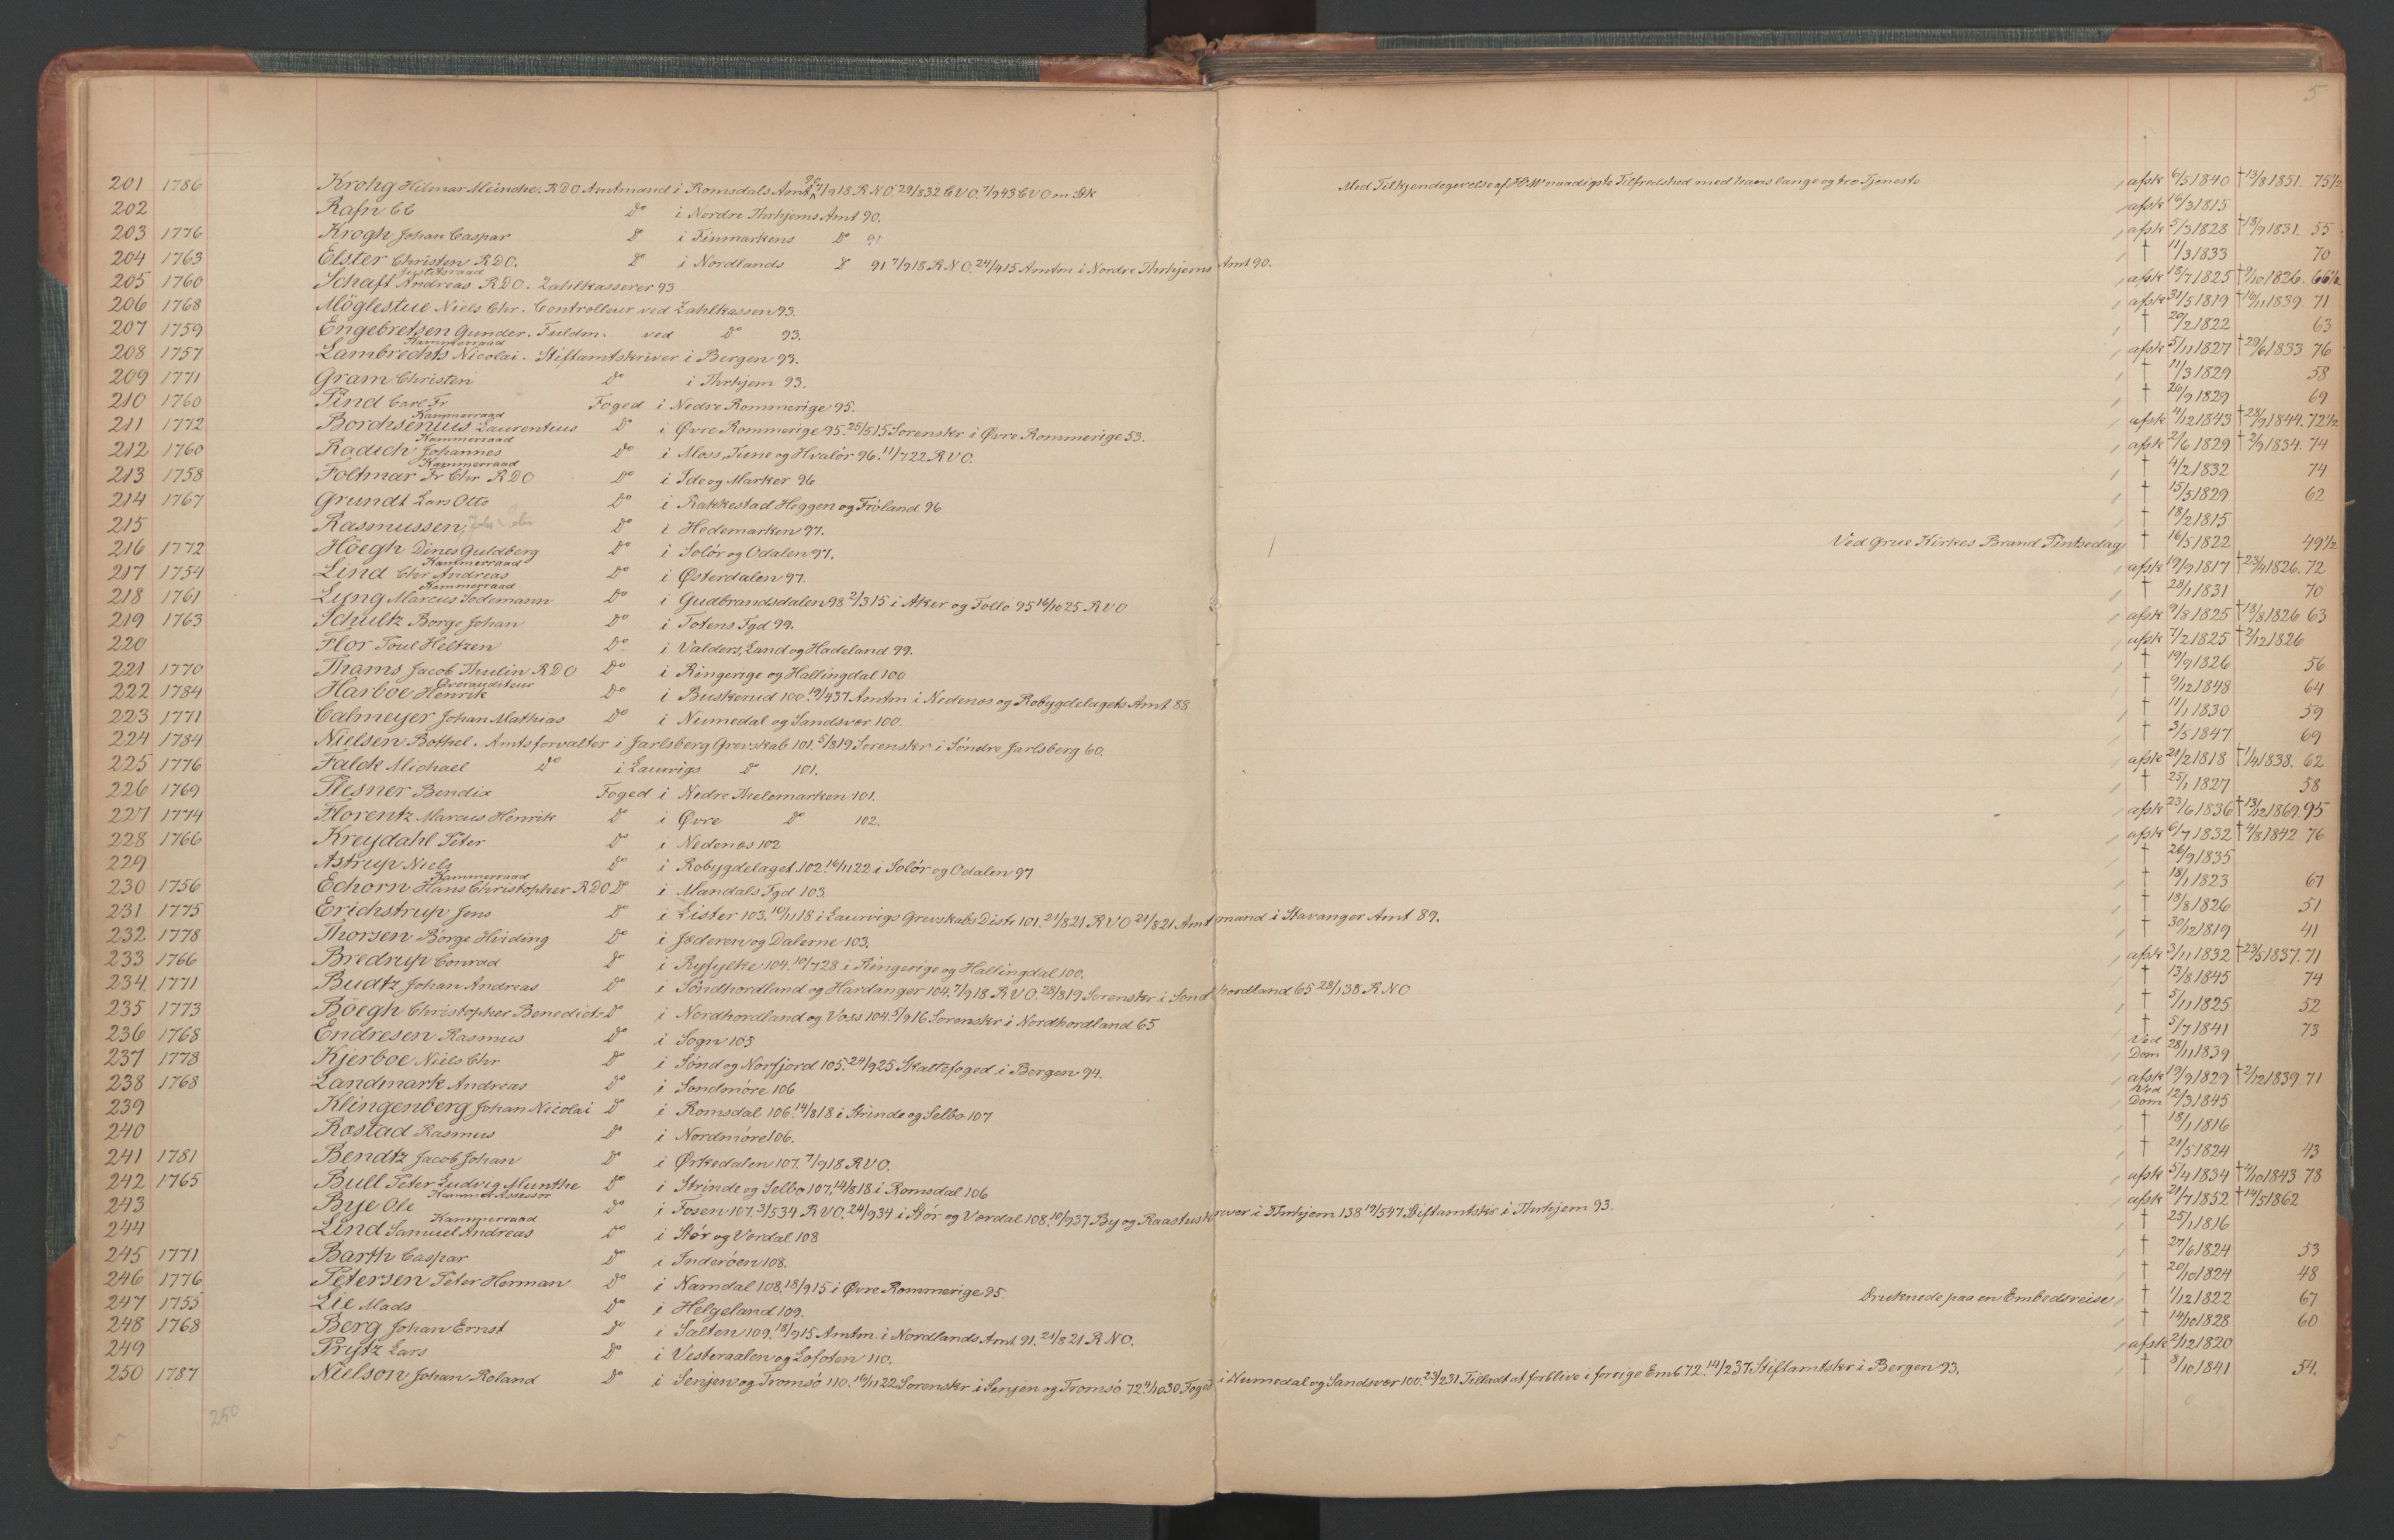 5
201 1786 Krohg Hilmar Meincke. RDO Amtmand i Romsdals Amt 90 7/918 RNO. 29/832 CVO. 7/943 CVO m Stk Med Tilkjendegivelse af H M naadigste Tilfredshed med hans lange og tro Tjeneste afsk 6/5 1840 †13/8 1851. 75½
202 Rafn CC Do i Nordre Thrhjems Amt 90. afsk 16/3 1815
203 1776 Krogh Johan Caspar Do i Finmarkens Do 91 afsk 5/3 1828 †13/9 1831. 55
204 1763 Elster Christen RDO. Do i Nordlands Do 91 7/918 RNO. 24/415 Amtm i Nordre Thrhjems Amt 90. † 11/3 1833 70
205 1760 Schaft Justitsraad Andreas RDO. Zahlkasserer 93 afsk 18/7 1825 †9/10 1826. 66½
206 1768 Möglestue Niels Chr. Controlleur ved Zahlkassen 93. afsk 31/5 1819 †16/11 1839. 71
207 1759 Engebretsen Gunder. Fuldm. ved Do 93. † 20/2 1822 63
208 1757 Lambrechts Kammerraad Nicolai. Stiftamtskriver i Bergen 93. afsk 5/11 1827 †29/6 1833 76
209 1771 Gram Christen Do i Thrhjem 93. † 11/3 1829 58
210 1760 Tind Carl Fr. Foged i Nedre Rommerige 95. † 26/9 1829 69
211 1772 Borchsenius Kammerraad Laurentius Do i Øvre Rommerige 95. 25/515 Sorenskr i Øvre Rommerige 53. afsk 4/12 1843 †28/9 1844. 72½
212 1760 Radich Kammerraad Johannes Do i Moss, Tune og Hvalör 96. 11/722 RVO. afsk 2/6 1829 †2/9 1834. 74
213 1758 Foltmar Kammerraad Fr Chr RDO Do i Ide og Marker 96 † 4/2 1832 74
214 1767 Grundt Lars Otto Do i Rakkestad Heggen og Fröland 96 † 15/5 1829 62
215 Rasmussen, Do i Hedemarken 97. † 18/2 1815
216 1772 Höegh Dines Guldberg Do i Solör og Odalen 97. Ved Grue Kirkes Brand Pintsedag † 16/5 1822 49½
217 1754 Lind Kammerraad Chr Andreas Do i Østerdalen 97. afsk 19/9 1817 †23/4 1826. 72
218 1761 Lyng Kammerraad Marcus Sodemann Do i Gudbrandsdalen 98 2/315 i Aker og Follo 95 16/1025 RVO † 28/1 1831 70
219 1763 Schultz Borge Johan Do i Totens Fgd 99. afsk 9/8 1825 †18/8 1826 63
220 Flor Poul Heltzen Do i Valders, Land og Hadeland 99. afsk 7/2 1825 †2/12 1826
221 1770 Thams Jacob Thulin RDO Do i Ringerige og Hallingdal 100 † 19/9 1826 56
222 1784 Harboe Overauditeur Henrik Do i Buskerud 100. 19/437 Amtm i Nedenæs og Robygdelagets Amt 88 † 9/12 1848 64
223 1771 Calmeyer Johan Mathias Do i Numedal og Sandsvær 100. † 11/1 1830 59
224 1784 Nielsen Bothel. Amtsforvalter i Jarlsberg Grevskab 101. 5/819 Sorenskr i Söndre Jarlsberg 60. † 3/5 1847 69
225 1776 Falck Michael Do i Laurvigs Do 101. afsk 21/2 1818 †1/4 1838. 62
226 1769 Plesner Bendix Foged i Nedre Thelemarken 101. † 25/1 1827 58
227 1774 Florentz Marcus Henrik Do i Øvre Do 102. afsk 23/6 1836 †13/12 1869. 95
228 1766 Kreydahl Peter Do i Nedenæs 102 afsk 6/7 1832 †4/8 1842 76
229 Astrup Niels Do i Robygdelaget 102. 16/1122 i Solör og Odalen 97 † 26/9 1835
230 1756 Echorn Kammerraad Hans Christopher RDO Do i Mandals Fgd 103. † 18/1 1823 67
231 1775 Erichstrup Jens Do i Lister 103. 10/1118 i Laurvigs Grevskabs Distr 101. 21/821 RVO 21/821 Amtmand i Stavanger Amt 89. † 18/8 1826 51
232 1778 Thorsen Börge Hviding Do i Jæderen og Dalerne 103. † 30/12 1819 41
233 1766 Bredrup Conrad Do i Ryfylke 104. 10/728 i Ringerige og Hallingdal 100. afsk 3/11 1832 †23/5 1837. 71
234. 1771 Budtz Johan Andreas Do i Söndhordland og Hardanger 104. 7/918 RVO. 28/819 Sorenskr i Söndhordland 65 28/138 RNO † 13/8 1845 74
235 1773 Böegh Christopher Benedict Do i Nordhordland og Voss 104. 5/916 Sorenskr i Nordhordland 65 † 5/11 1825 52
236 1768 Endresen Rasmus Do i Sogn 105 † 5/7 1841 73
237 1778 Kjerboe Niels Chr Do i Sönd og Norfjord 105. 24/925 Skattefoged i Bergen 94. Ved Dom 28/11 1839
238 1768 Landmark Andreas Do i Söndmöre 106 afsk 19/9 1829 †2/12 1839 71
239 Klingenberg Johan Nicolai Do i Romsdal 106. 14/818 i Strinde og Selbo 107 Ved Dom 12/3 1845
240 Rostad Rasmus Do i Nordmöre 106. † 18/1 1816
241 1781 Bendtz Jacob Johan Do i Ørkedalen 107. 7/918 RVO. † 21/5 1824 43
242 1765 Bull Peter Ludvig Munthe Do i Strinde og Selbo 107. 14/818 i Romsdal 106 afsk 5/4 1834 †4/10 1843 78
243 Bye Kammer Assessor Ole Do i Fosen 107. 3/534 RVO. 24/934 i Stör og Værdal 108. 10/937 By og Raadstuskriver i Thrhjem 138 19/547 Stiftamtskr i Thrhjem 93. afsk 21/7 1852 †14/5 1862
244 Lind Kammerraad Samuel Andreas Do i Stör og Værdal 108 † 25/1 1816
245 1771 Barth Caspar Do i Inderöen 108. † 27/6 1824 53
246 1776 Petersen Peter Herman Do i Namdal 108. 18/915 i Øvre Rommerige 95. † 20/10 1824 48
247 1755 Lie Mads Do i Helgeland 109. Druknede paa en Embedsreise † 1/12 1822 67
248 1768 Berg Johan Ernst Do i Salten 109. 18/915 Amtm. i Nordlands Amt 91. 21/821 RNO. † 14/10 1828 60
249 Prytz Lars Do i Vesteraalen og Lofoten 110. afsk 2/12 1820
250 1787 Nielson Johan Roland Do i Senjen og Tromsö 110. 16/1122 Sorenskr i Senjen og Tromsö 72. 4/1030 Foged i Numedal og Sandsvær 100. 23/231 Tilladt at forblive i forrige Emb 72. 14/237 Stiftamtskr i Bergen 93. † 3/10 1841 54.
250
5